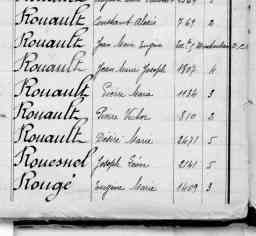 Rouault Constant Aloïs 769 2
Rouault Jean Marie Eugène
Rouault Jean Marie Joseph 1807 4
Rouault Pierre Marie 1134 3
Rouault Pierre Victor 810 2
Rouault Désiré Marie 2471 5
Rouesnel Joseph 2141 5
Rougé Eugène Marie 1409 3